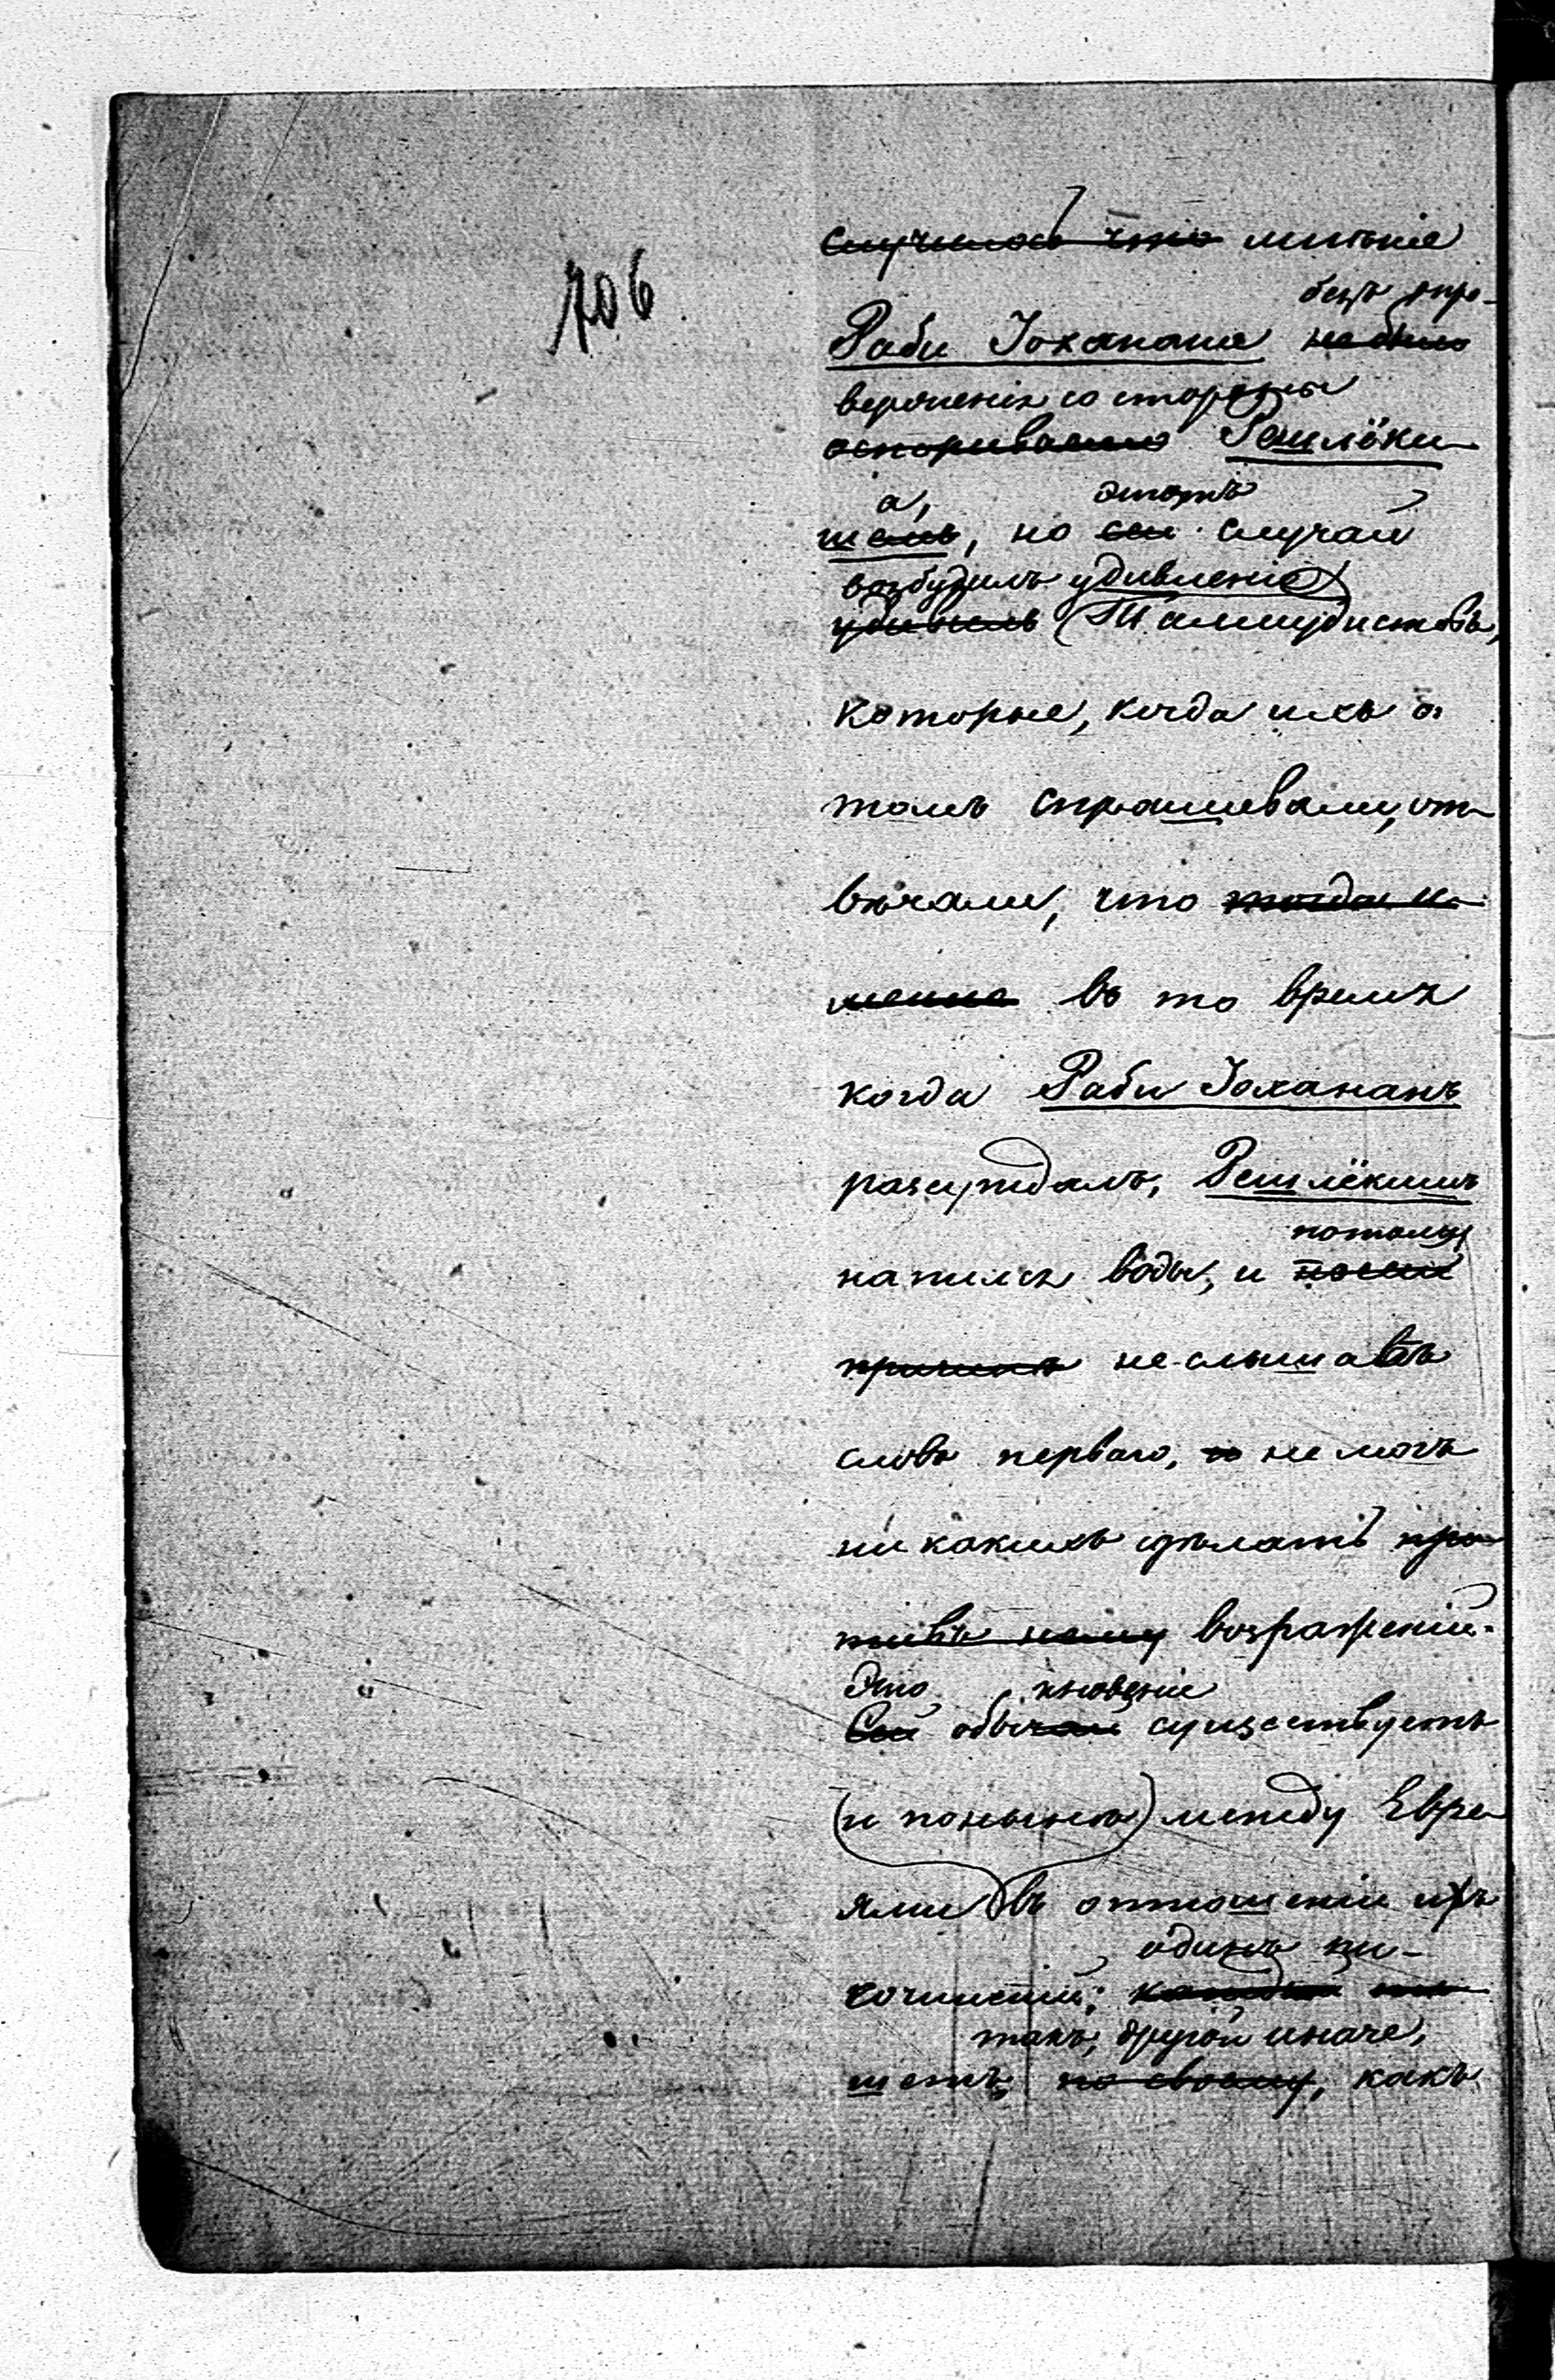 706
случилось что мнѣніе
безъ опро-
Раби Іоханана не было
верженія со стороны
оспориваемо Решлёки
а, этотъ
шемъ, но сей случай
возбудилъ удивленіе
удивилъ Талмудистовъ,
которые, когда ихъ о
томъ спрашивали, от-
вѣчали, что тогда и-
менно въ то время
когда Раби Іохананъ
разсуждалъ, Решлёкишъ
потому
напился воды, и по сей
причинѣ не слышавъ
словъ перваго, и не могъ
ни какихъ сдѣлать про
тивъ нему возраженій.
Это кновеніе
Сей обычай существуетъ
(и понынѣ) между Евре
ями въ отношеніи ихъ
одинъ пи-
сочиненій; каждый пи-
такъ, другой иначе,
шетъ по своему, какъ